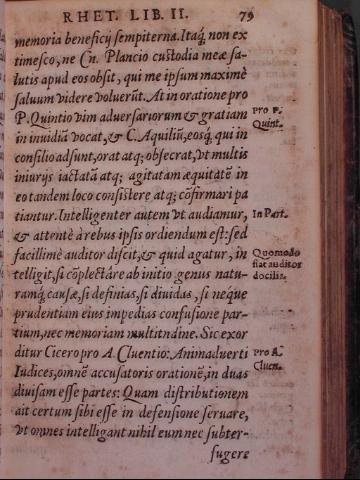 RHET. LIB. II. 79
memoria beneficij sempiterna. Itaq; non ex
timesco, ne Cn. Plancio custodia meæ sa-
lutis apud eos obsit, qui me ipsum maximè
saluum videre voluerũt. At in oratione pro
P. Quintio vim aduersariorum & gratiam
in inuidiã vocat, & C. Aquiliũ, eosq; qui in
consilio adsunt, orat atq; obsecrat, vt multis
iniurijs iactatã atq; agitatam æquitatẽ in
eo tandem loco consistere atq; cõfirmari pa
tiantur. Intelligenter autem vt audiamur,
& attentè à rebus ipsis ordiendum est: sed
facillimè auditor discit, & quid agatur, in
telligit, si cõplectáre ab initio genus natu-
ramq; causæ, si definias, si diuidas, si neque
prudentiam eius impedias confusione par-
tium, nec memoriam multitndine. Sic exor
ditur Cicero pro A. Cluentio: Animaduerti
Iudices, omnẽ accusatoris orationẽ, in duas
diuisam esse partes: Quam distributionem
ait certum sibi esse in defensione seruare,
vt omnes intelligant nihil eum nec subter-
fugere
pro P.
Quint.
In Part.
Quomodo
fiat auditor
docilis.
pro A.
Cluen.